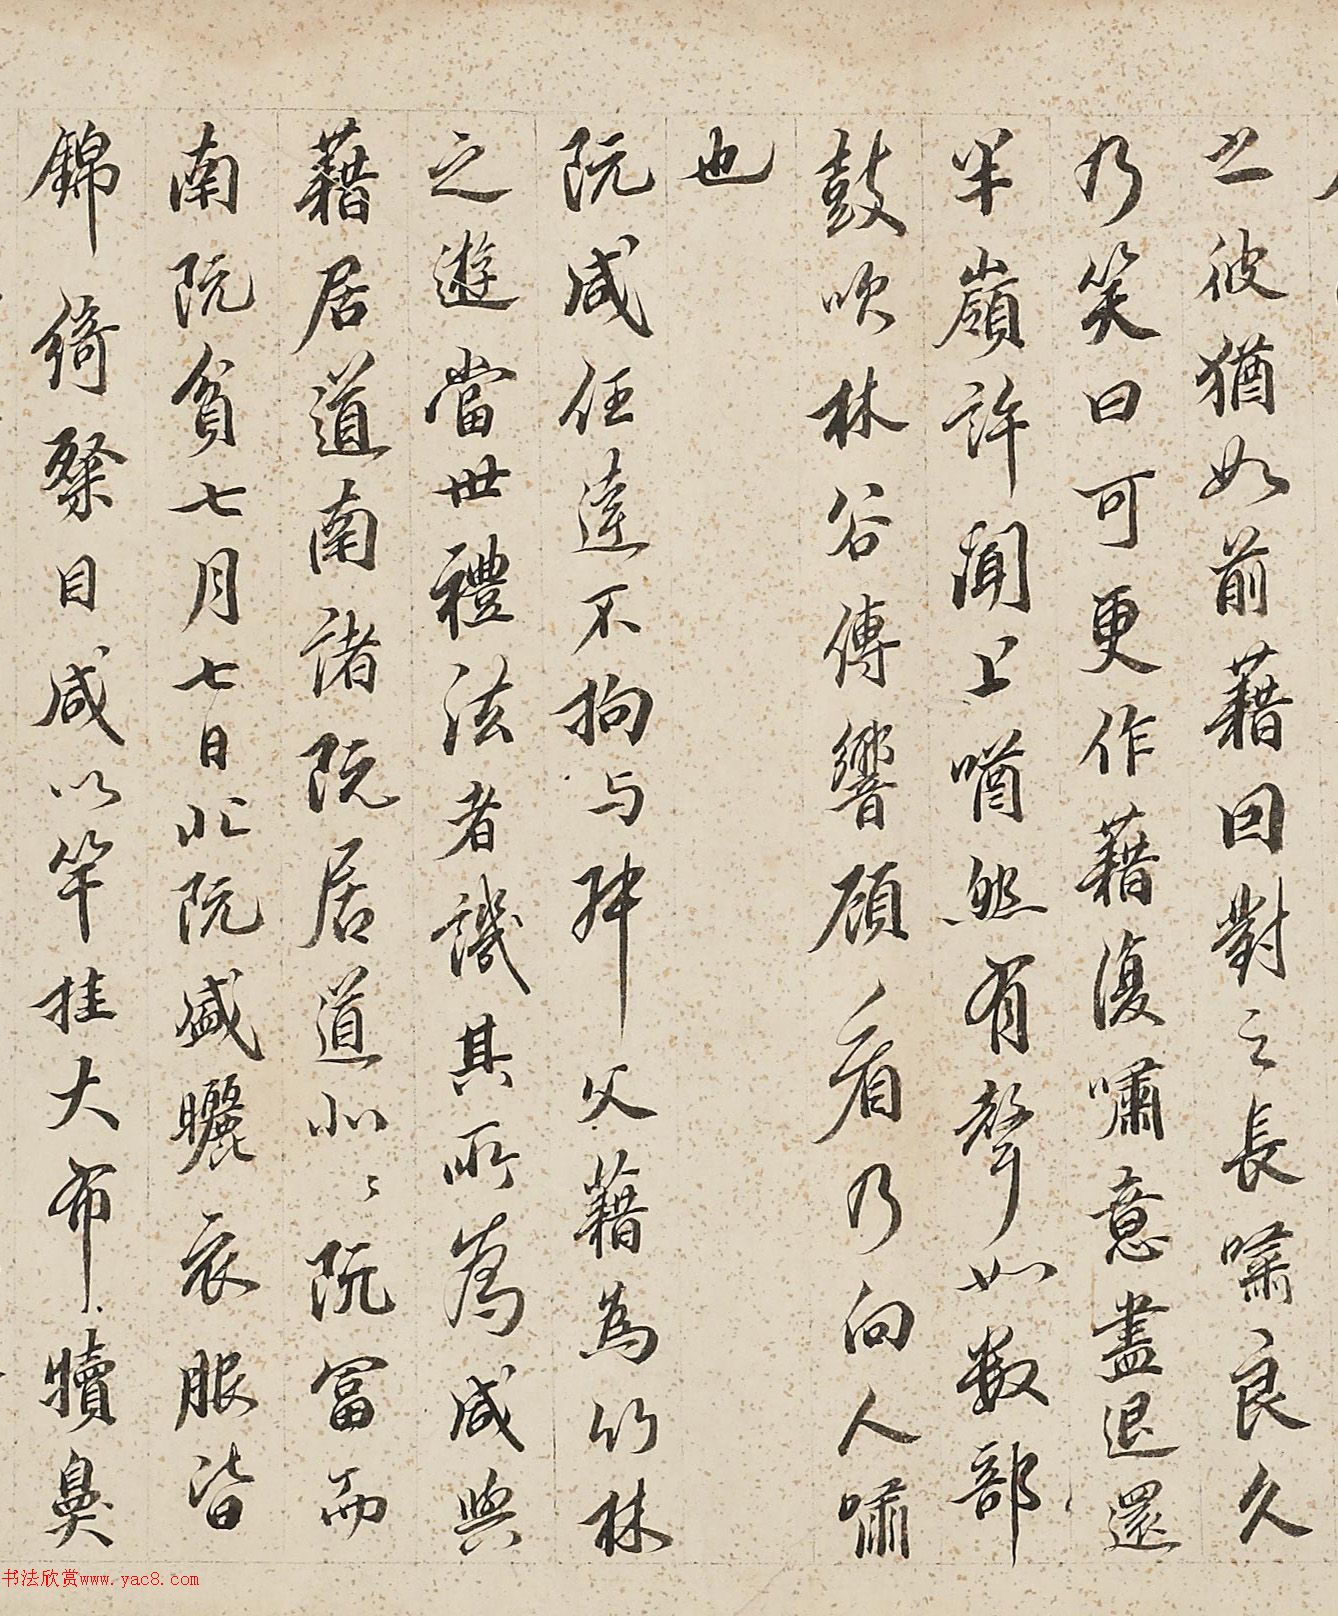 之彼猶如前藉因對之長嘯良久
乃笑曰可更作藉復嘯意盡退還
半嶺許聞上㗜然有聲如數部
鼓吹林谷傳響顧看乃向人嘯
也
阮咸任達不拘与叔父藉為竹林
之遊當世禮法者譏其所為咸與
藉居道南諸阮居道北〻阮富而
南阮貧七月七日北阮盛曬衣服皆
錦綺粲目咸以竿挂大布犢鼻
书法欣赏www.yac8.com